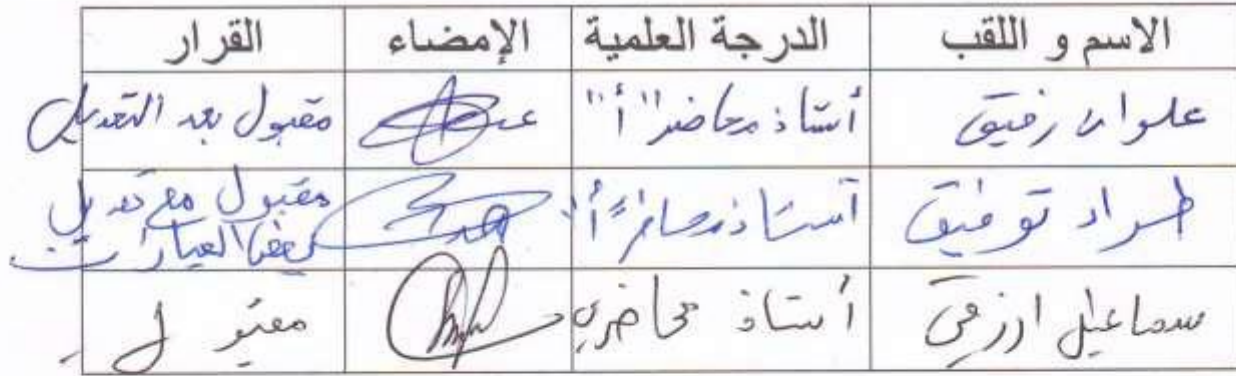 الاسم و اللقب الدرجة العلمية الإمضاء القرار
علوان رفيق أستاذ محاضر "أ" مقبول بعد التعديل
طراد توفيق أستاذ محاضر "أ" مقبول مع تعديل
بعض العبارات
سماعيل ارزقي أستاذ محاضر مقبول